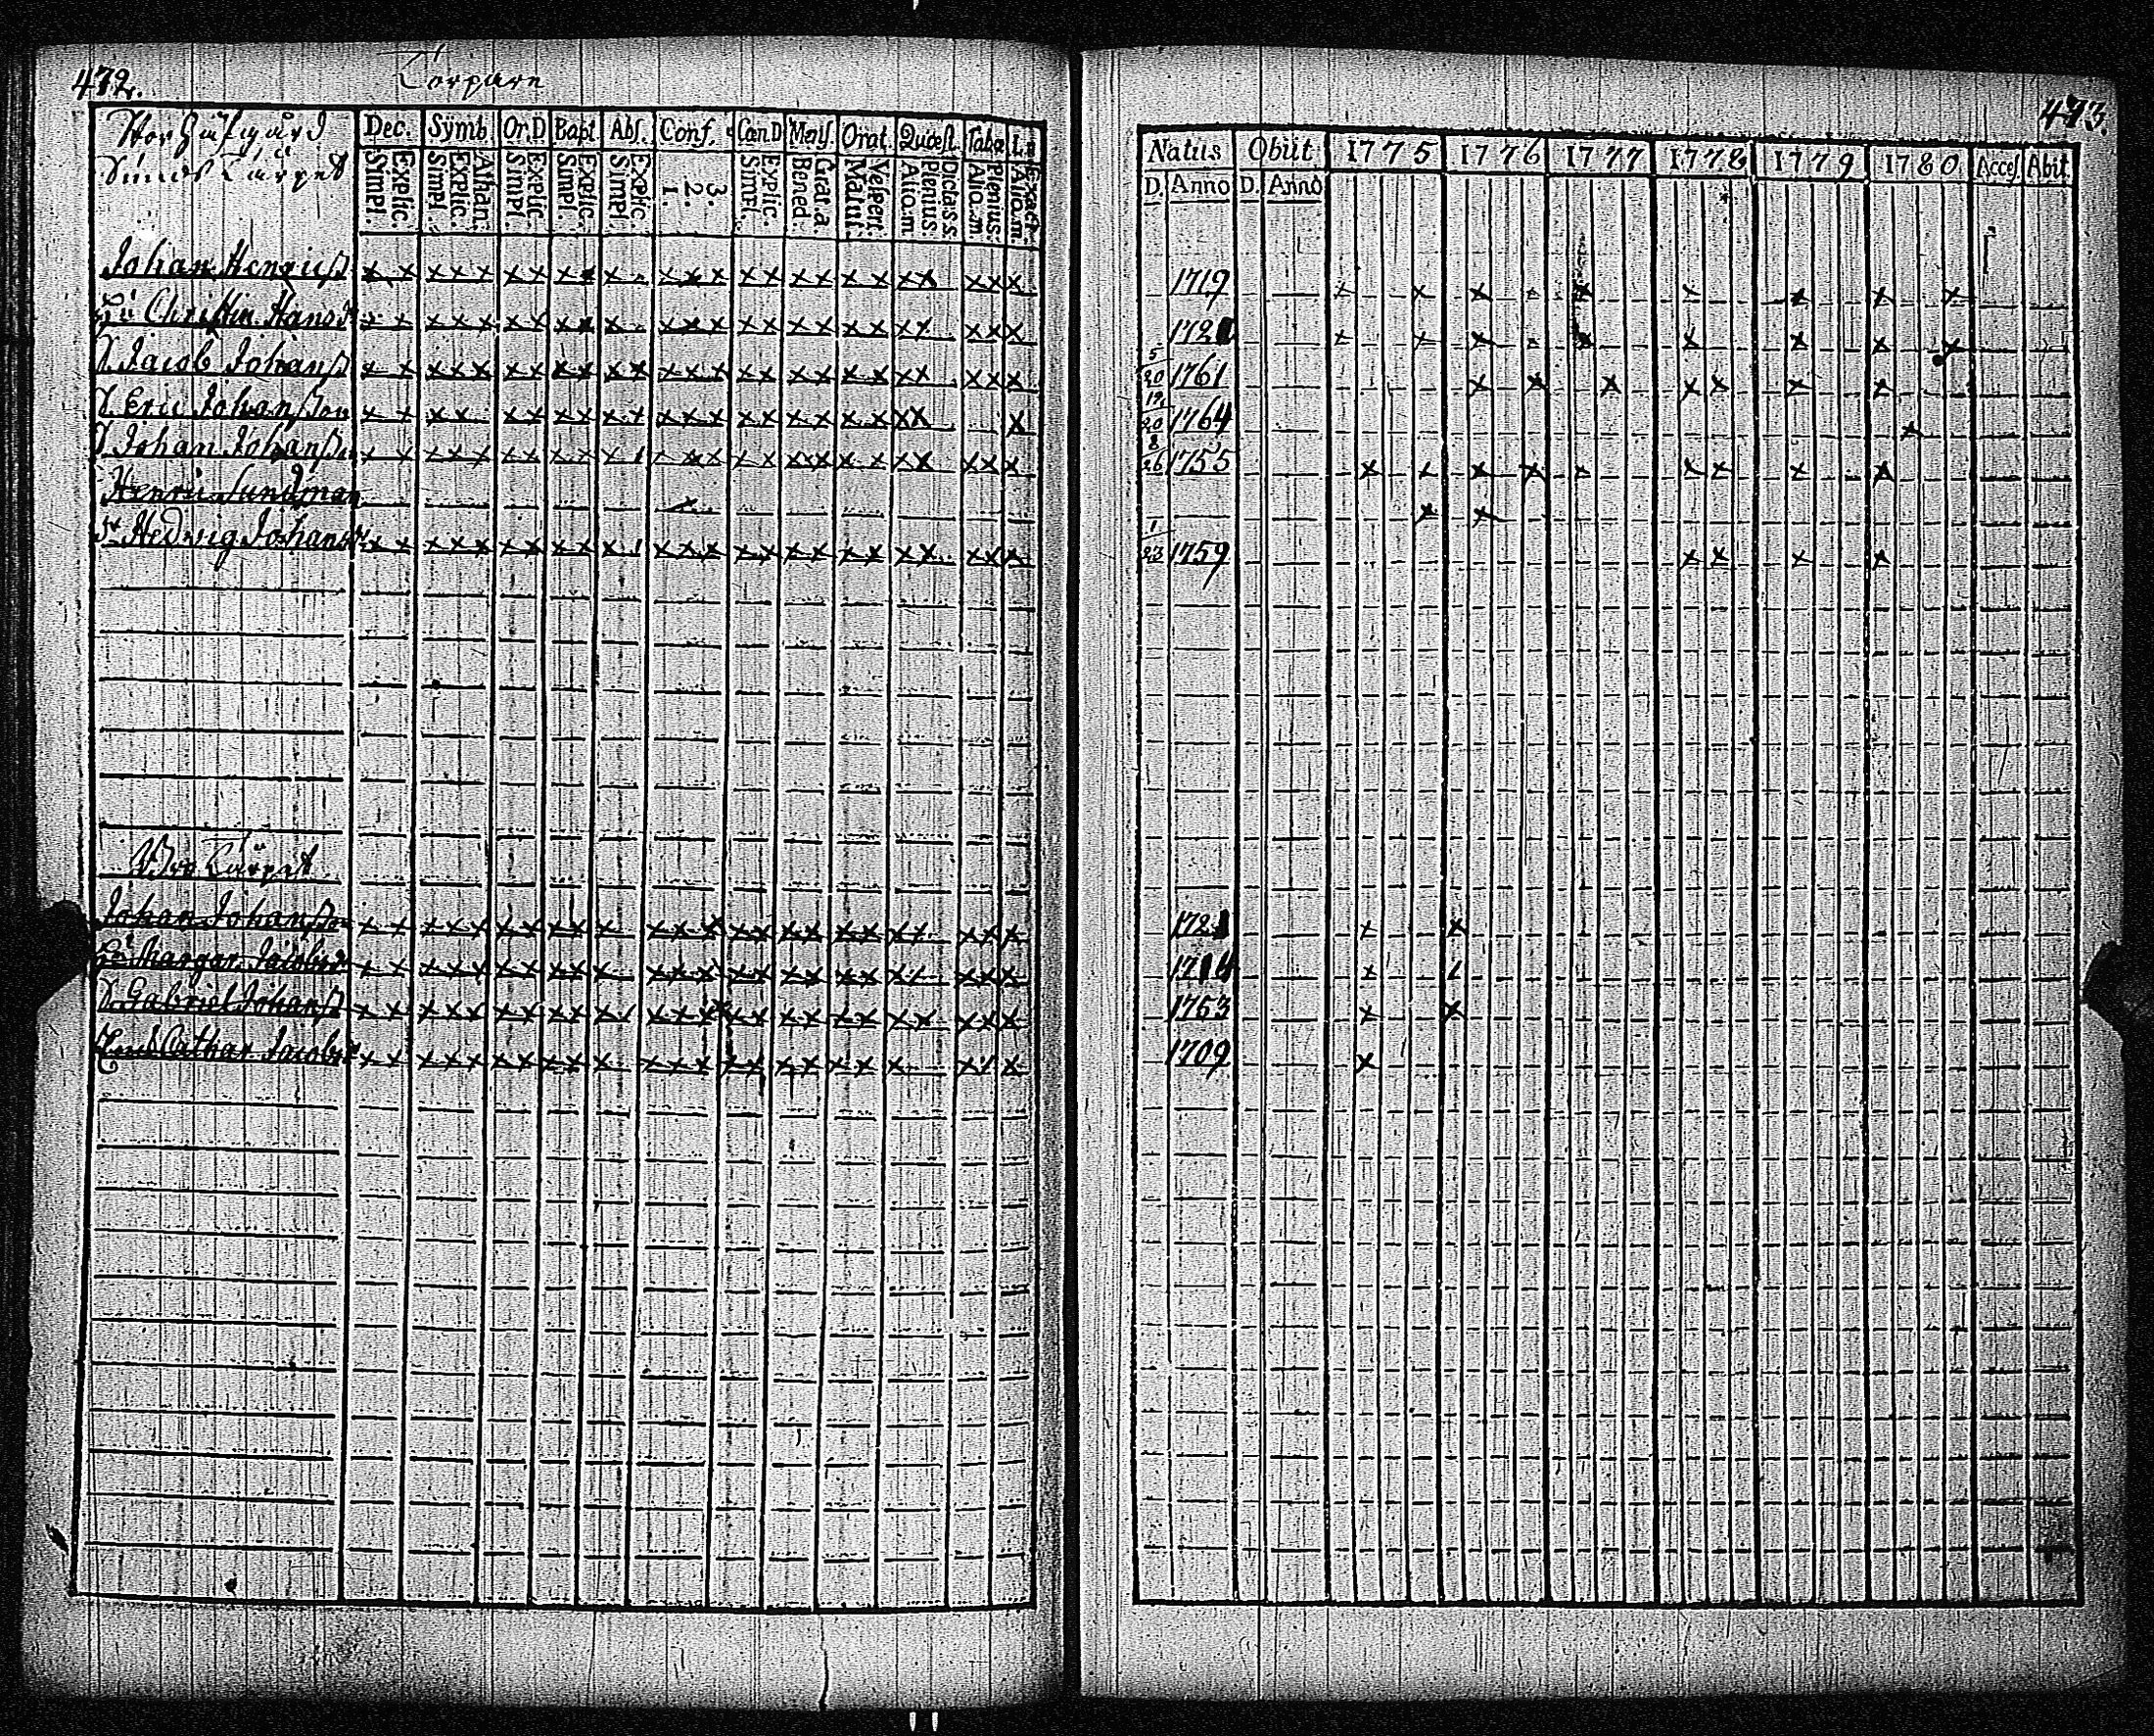 472.
Torpare
Dec. Symb. Or.D. Bapt. Abs. Conf. Can D Mens. Orat. Quæst. Taba
Simpl. Explic. Simpl. Explic. Athan. Simpl. Explic. Simpl. Explic. Simpl. Explic. 1. 2. 3. Simpl. Explic. Bened. Grat.a Matut. Vespert. Alio.m Plenius. Dictas s Alio.m Plenius. Alio.m Exact.
Johan Hengriß x x x x x x x x x x x x x x x x x x x x x x x x x
Christin Hansdr x x x x x x x x x x x x x x x x x x x x x x x
S. Jacob Johanß x x x x x x x x x x x x x x x x x x x x x x x x x
S. Eric Johanßon x x x x x x x x x x x x x x x x x x x x x x
S. Johan Johanßn x x x x x x x x x x x x x x x x x x x x x x x x x
Henric Sundman x
Hedvig Johansdr x x x x x x x x x x x x x x x x x x x x x x x x
Bro Torpet
Johan Johanßon x x x x x x x x x x x x x x x x x x x x x x x x
Margar. Jacobsdr x x x x x x x x x x x x x x x x x x x x x x x x
S. Gabriel Johanß x x x x x x x x x x x x x x x x x x x x x x x x x
Cathar. Jacobsdr x x x x x x x x x x x x x x x x x x x x x x x
473.
Natus Obiit 1775 1776 1777 1778 1779 1780 Acces. Abit.
D. Anno D. Anno
1719 x x x x x x x x x
172 x x x x x x x x x
5/20 1761 x x x x x x x
19/20 1764 x
8/26 1755 x x x x x x x x x
x x
1/23 1759 x x x x
172 x x
x
1763 x x
1709 x